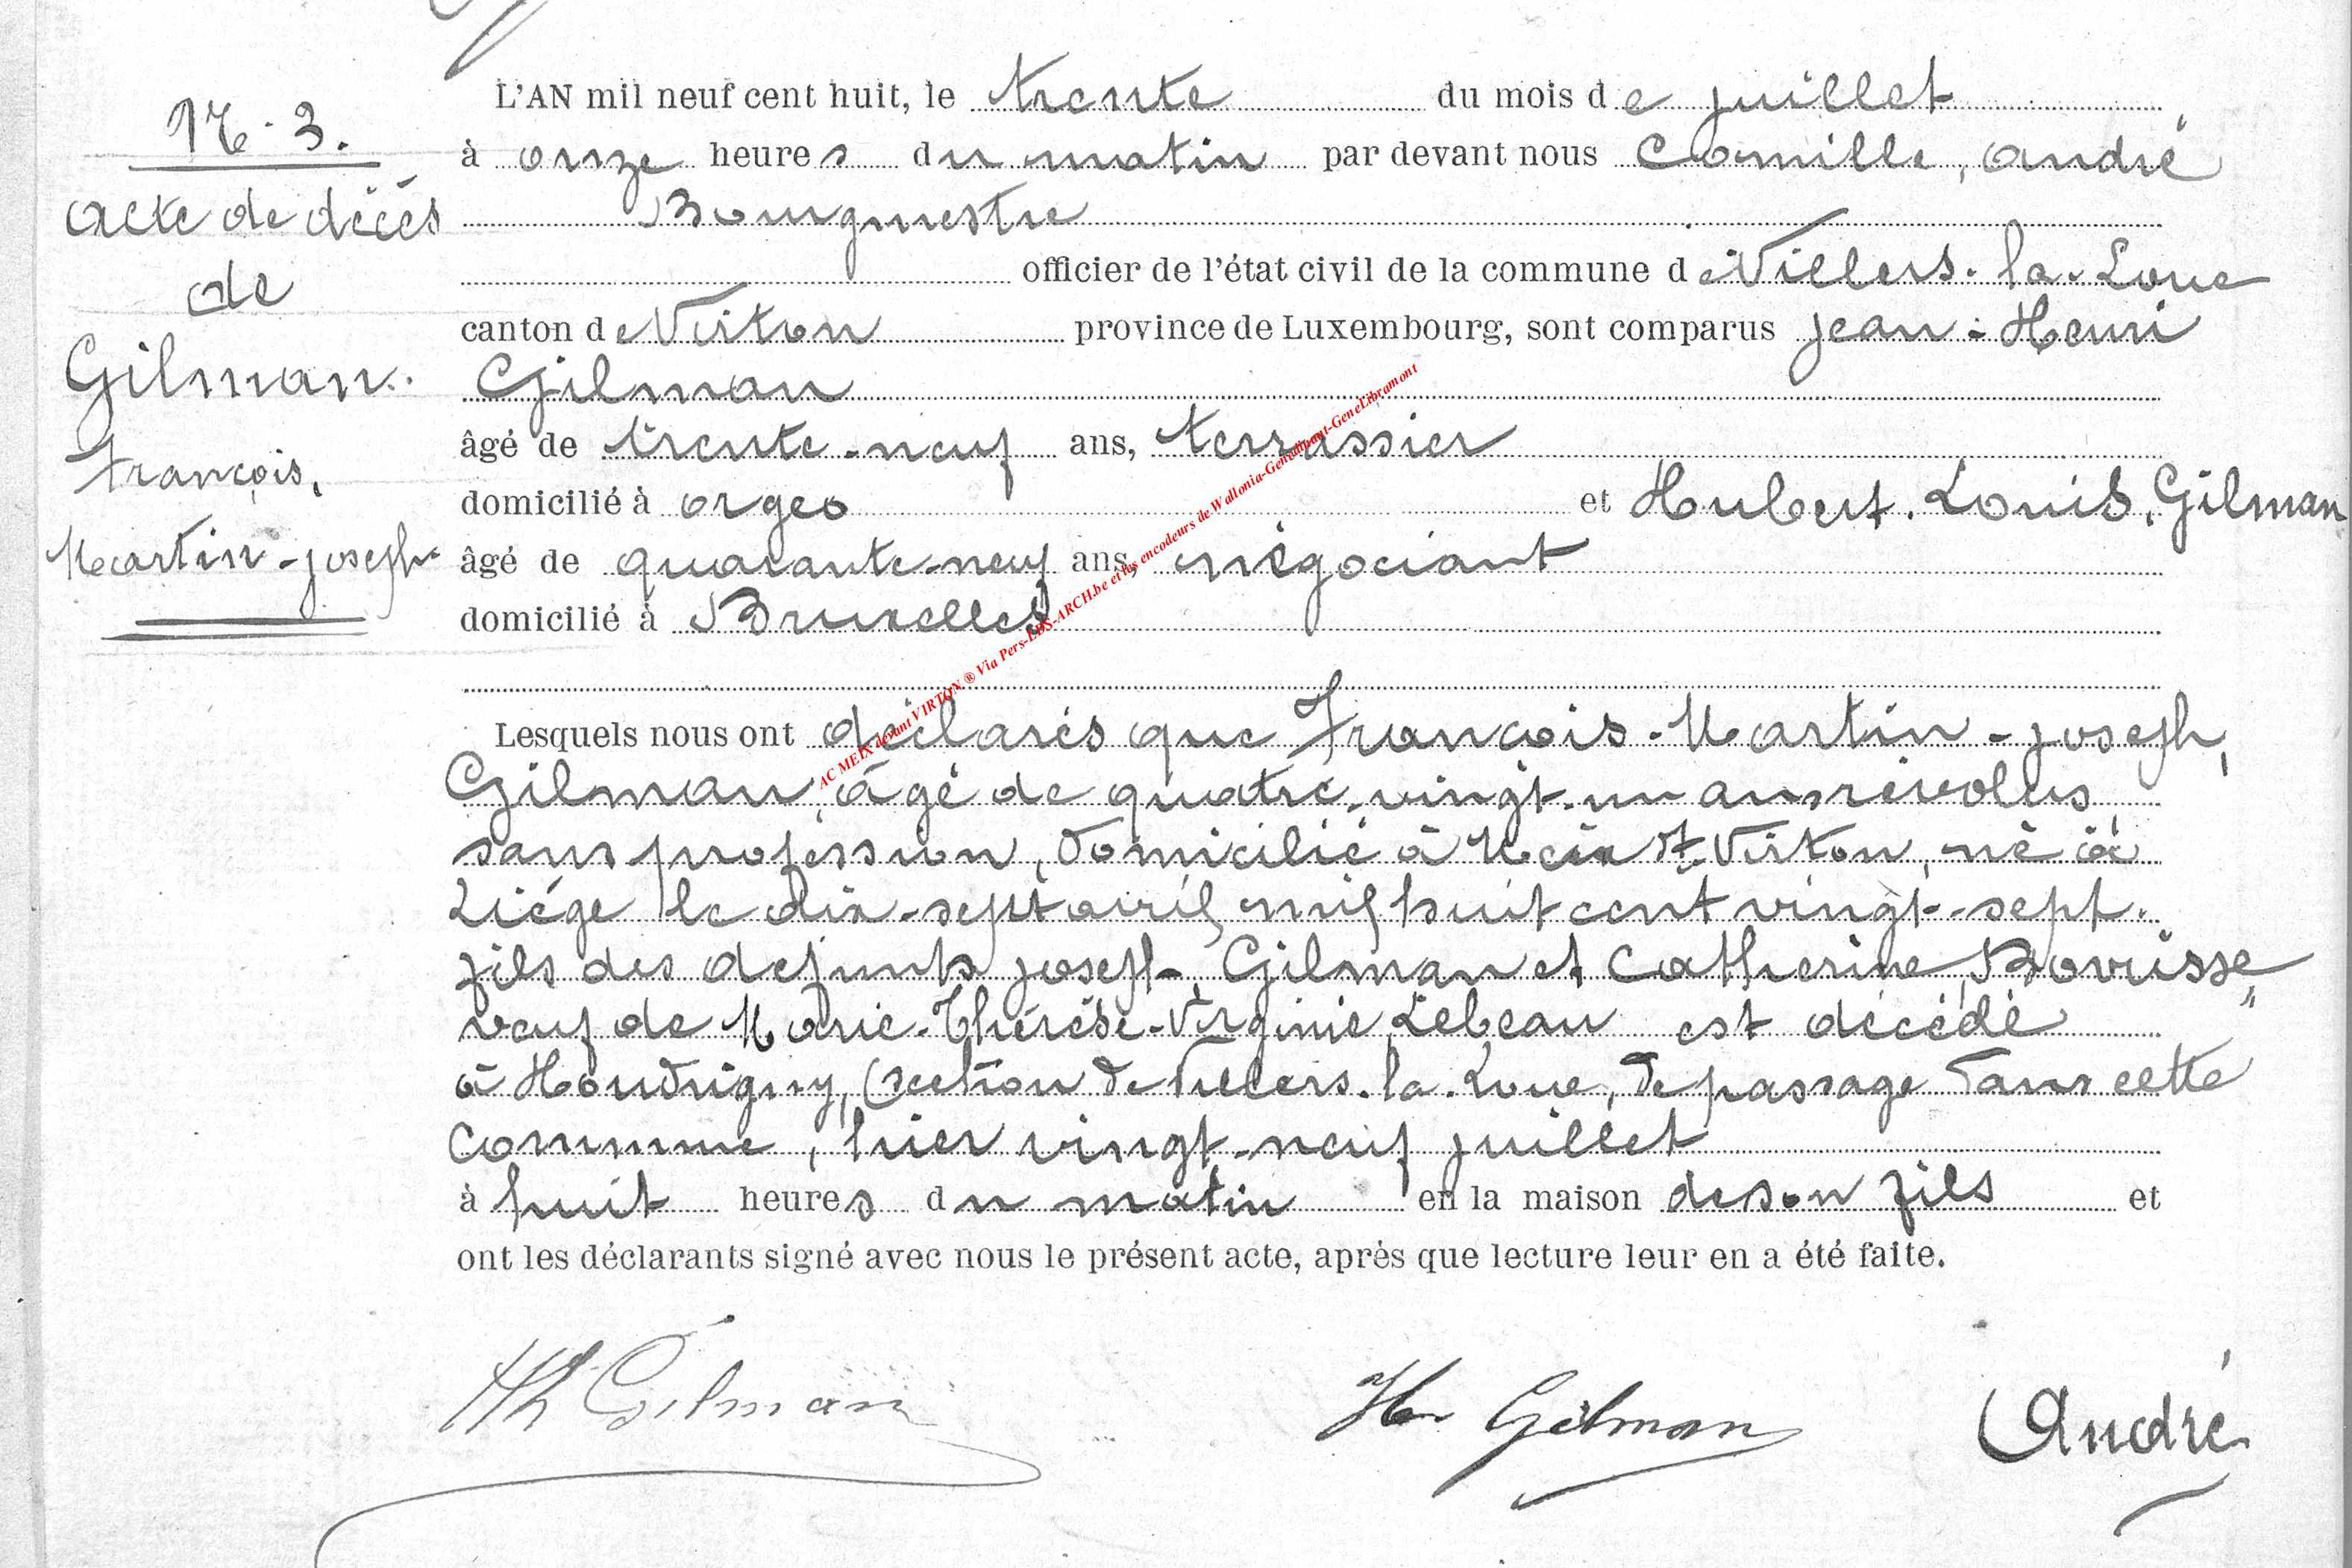 N° 3.
acte de décès
de
Gilman.
françois,
Martin-joseph
L'AN mil neuf cent huit, le trente du mois de juillet
à onze heures du matin par devant nous Camille, andré
Bourgmestre
officier de l'état civil de la commune de Villers-la-Loue
canton de Virton province de Luxembourg, sont comparus jean-Henri
Gilman
âgé de trente-neuf ans, terrassier
domicilié à orgeo et Hubert. Louis. Gilman
âgé de quarante-neuf ans, négociant
domicilié à Bruxelles
Lesquels nous ont déclarés que François-Martin-joseph,
Gilman, âgé de quatre-vingt-un ans révolus
sans profession, domicilié à Meix dt Virton, né à
Liége le dix-sept avril mil huit cent vingt-sept.
fils des defunts joseph Gilman et Catherine Bovrisse,
veuf de Marie-Thérèse-Virginie Lebeau est décédé
à Houdrigny, (section de Villers-la-Loue, de passage dans cette
commune, hier vingt-neuf juillet
à huit heures du matin en la maison de son fils et
ont les déclarants signé avec nous le présent acte, après que lecture leur en a été faite.
Hh Gilman
Hr Gilman
André
AC MEIX devant VIRTON ® Via Pers-LDS-ARCH.be et les encodeurs de Wallonia-Genaminant-GeneLibramont